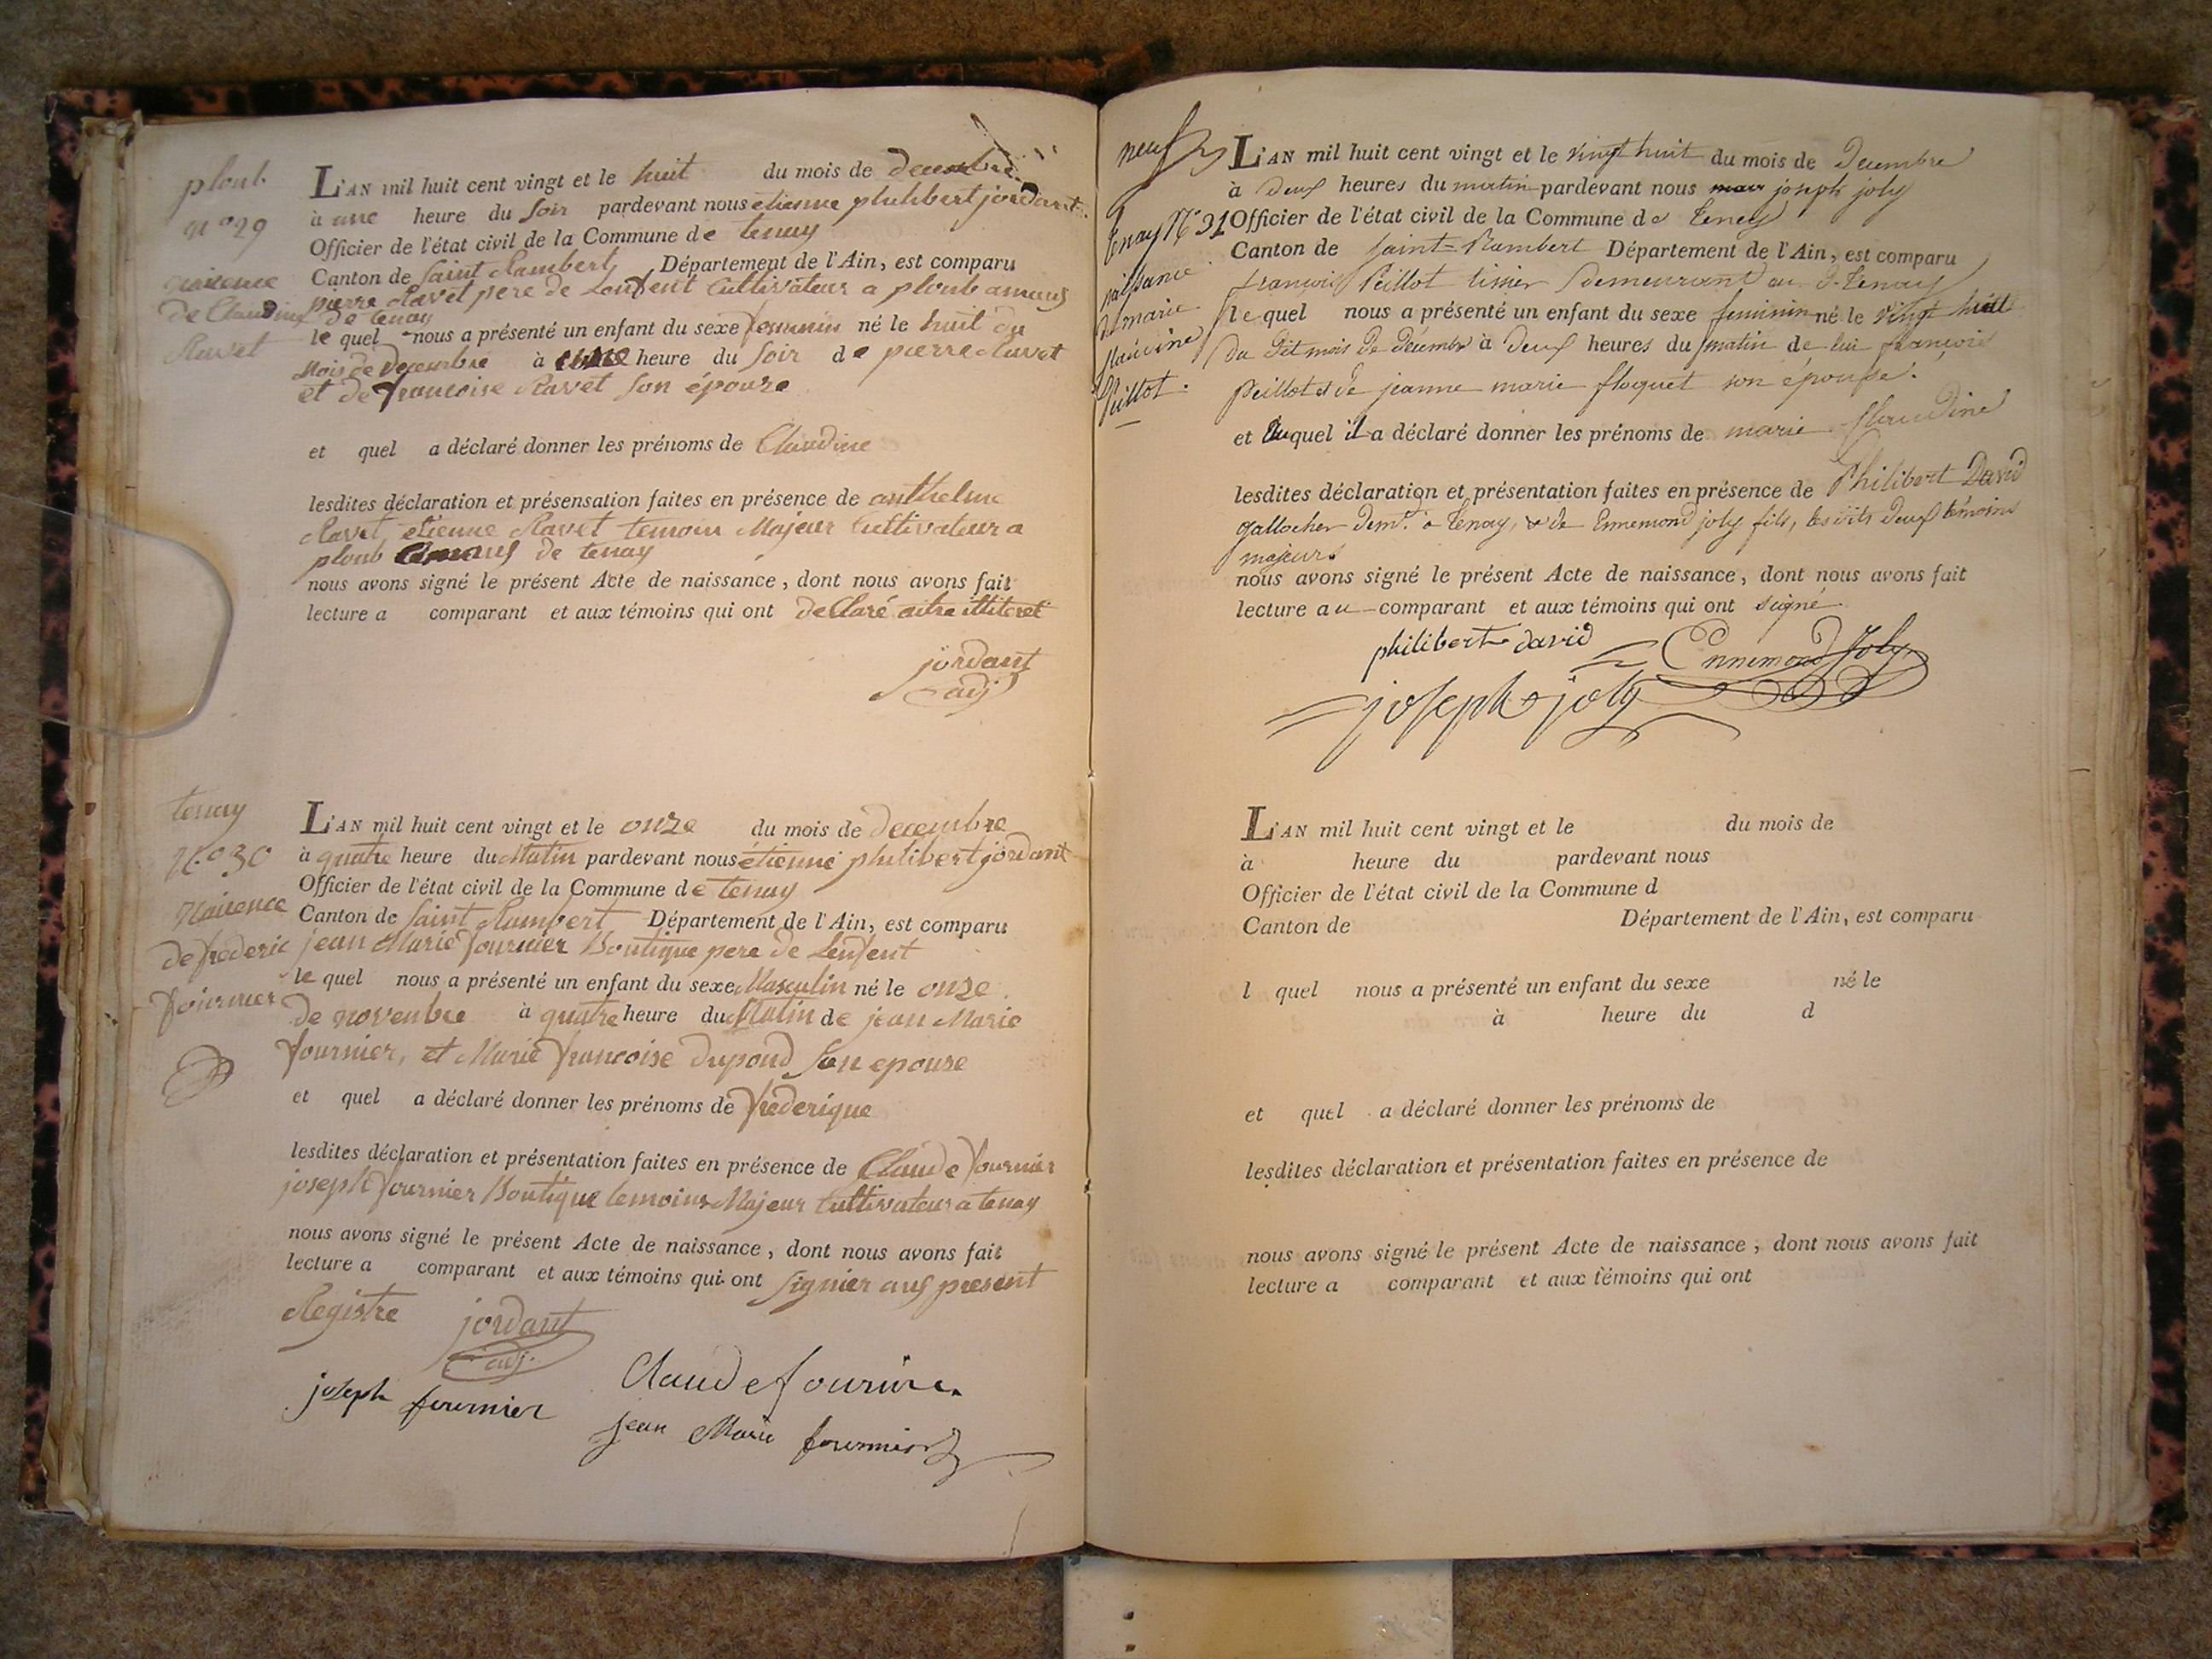 plomb
n° 29
naisence
de Claudine
Ravet
L'AN mil huit cent vingt et le huit du mois de decembre
à une heure du soir pardevant nous etienne philibert jordant
Officier de l'état civil de la Commune de tenay
Canton de Saint Rambert Département de l'Ain, est comparu
pierre Ravet pere de Lenfent Cultivateur a plomb amaus
de tenay
le quel nous a présenté un enfant du sexe femmin né le huit du
Mois de Decembre à une heure du soir de pierre Ravet
et de francoise Ravet son épouze
et quel a déclaré donner les prénoms de Claudine
lesdites déclaration et présensation faites en présence de anthelme
Ravet, etienne Ravet temoin Majeur Cultivateur a
plomb amaus de tenay
nous avons signé le présent Acte de naissance, dont nous avons fait
lecture a comparant et aux témoins qui ont declaré aitre illiteret
jordant
adj
tenay
N.° 30
Naisence
de frederic
fournier
L'AN mil huit cent vingt et le onze du mois de decembre
à quatre heure du Matin pardevant nous étienne philibert jordant
Officier de l'état civil de la Commune de tenay
Canton de Saint Rambert Département de l'Ain, est comparu
jean Marie fournier Boutique pere de Lenfent
le quel nous a présenté un enfant du sexe Masculin né le onze
de novenbre à quatre heure du Matin de jean Marie
fournier, et Marie francoise dupond son epouse
et quel a déclaré donner les prénoms de frederique
lesdites déclaration et présentation faites en présence de Claude fournier
joseph fournier Boutique temoins Majeur Cultivateur a tenay
nous avons signé le présent Acte de naissance, dont nous avons fait
lecture a comparant et aux témoins qui ont signier aus present
Registre jordant
adj.
joseph fournier Claude fournier
jean Marie fournier
neuf
Tenay N.° 31
naissance
de marie
claudine
Peillot.
L'AN mil huit cent vingt et le vingt huit du mois de Decembre
à deux heures du matin pardevant nous joseph joly
Officier de l'état civil de la Commune de Tenay
Canton de Saint-Rambert Département de l'Ain, est comparu
françois Peillot tissier demeurant au d. Tenay
le quel nous a présenté un enfant du sexe feminin né le vingt huit
du dit mois de décembre à deux heures du matin de lui françois
Peillot et de jeanne marie floquet son épouse.
et Auquel il a déclaré donner les prénoms de marie claudine
lesdites déclaration et présentation faites en présence de Philibert David
gallocher demt. à Tenay, & de Ennemond joly fils, lesdits deux témoins
majeurs
nous avons signé le présent Acte de naissance, dont nous avons fait
lecture au comparant et aux témoins qui ont signé
philibert david Ennemond Joly
joseph joly
L'AN mil huit cent vingt et le du mois de
à heure du pardevant nous
Officier de l'état civil de la Commune d
Canton de Département de l'Ain, est comparu
l quel nous a présenté un enfant du sexe né le
à heure du d
et quel a déclaré donner les prénoms de
lesdites déclaration et présentation faites en présence de
nous avons signé le présent Acte de naissance, dont nous avons fait
lecture a comparant et aux témoins qui ont